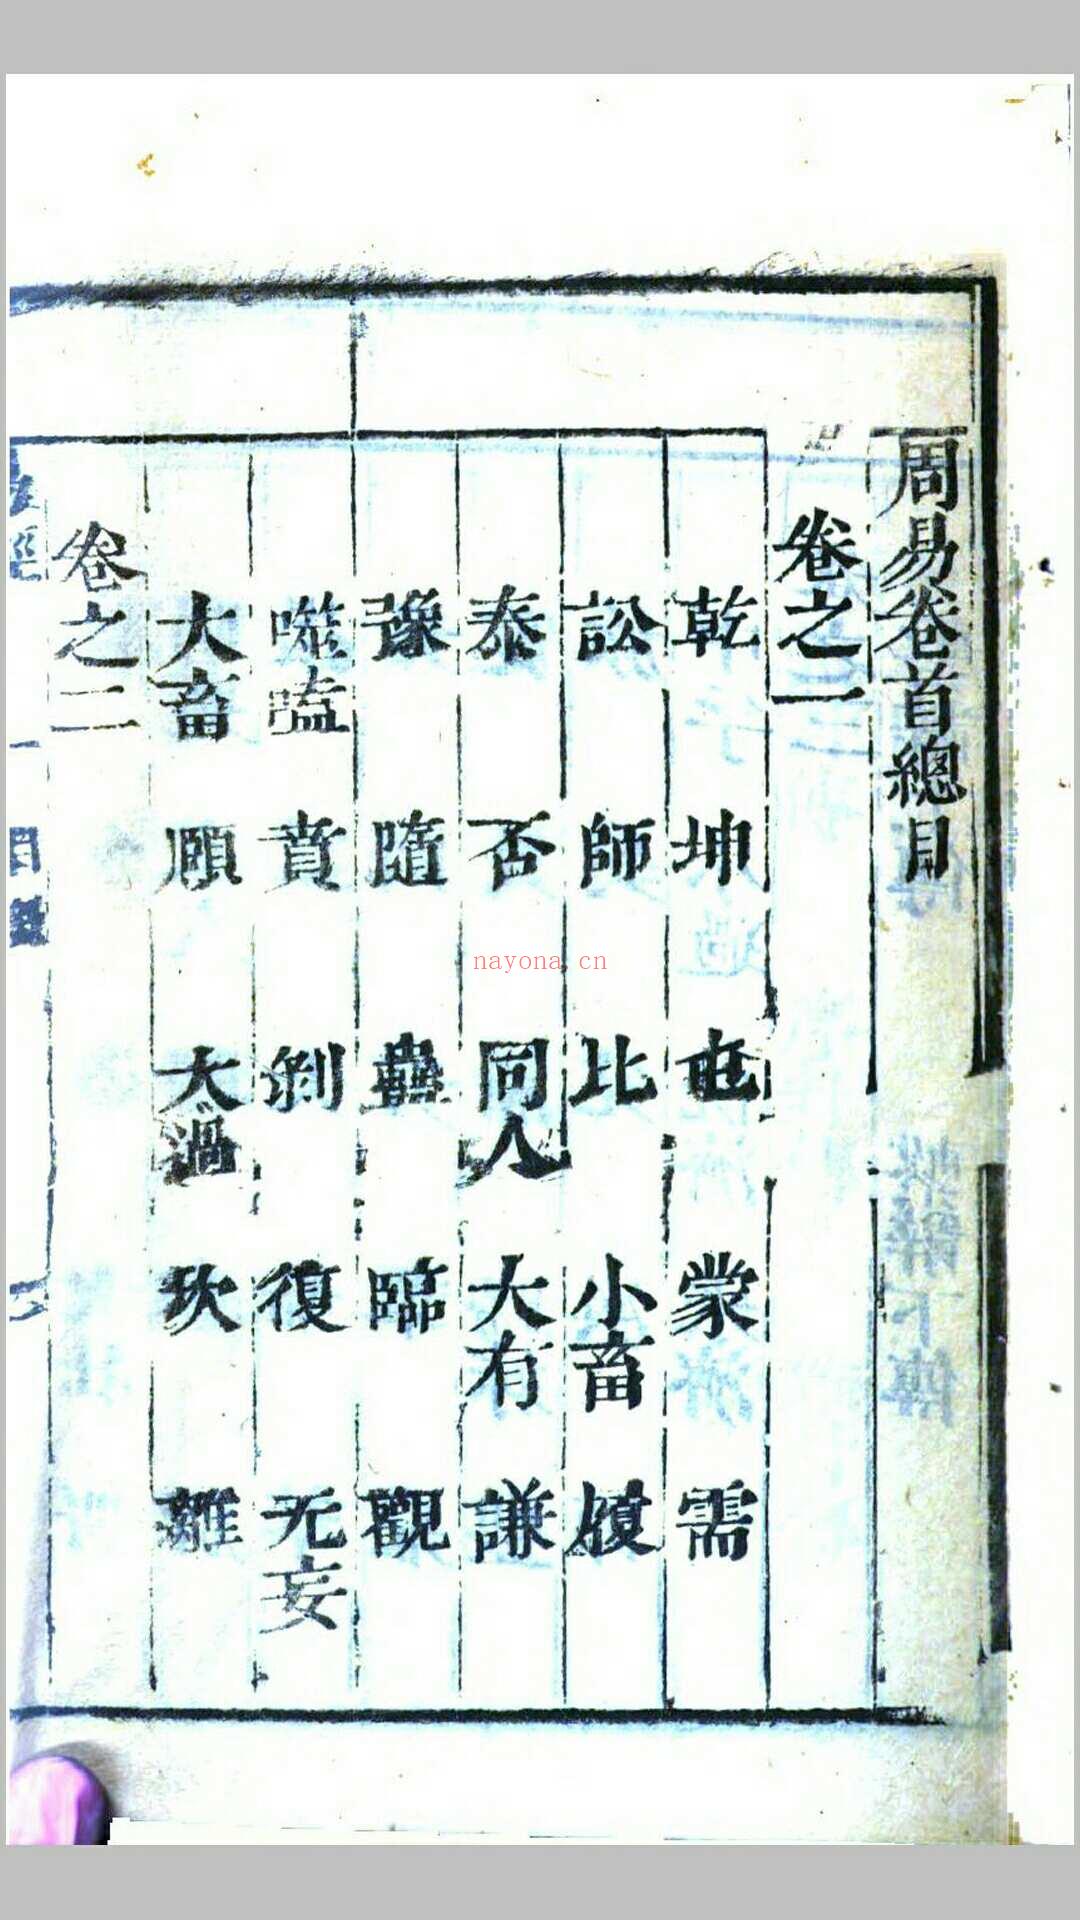 周易卷首總目
卷之一
乾 坤 屯 蒙 需
訟 師 比 小畜 履
泰 否 同人 大有 謙
豫 隨 蠱 臨 觀
噬嗑 賁 剝 復 无妄
大畜 頤 大過 坎 離
卷之二
易經 一 目錄
nayona.cn